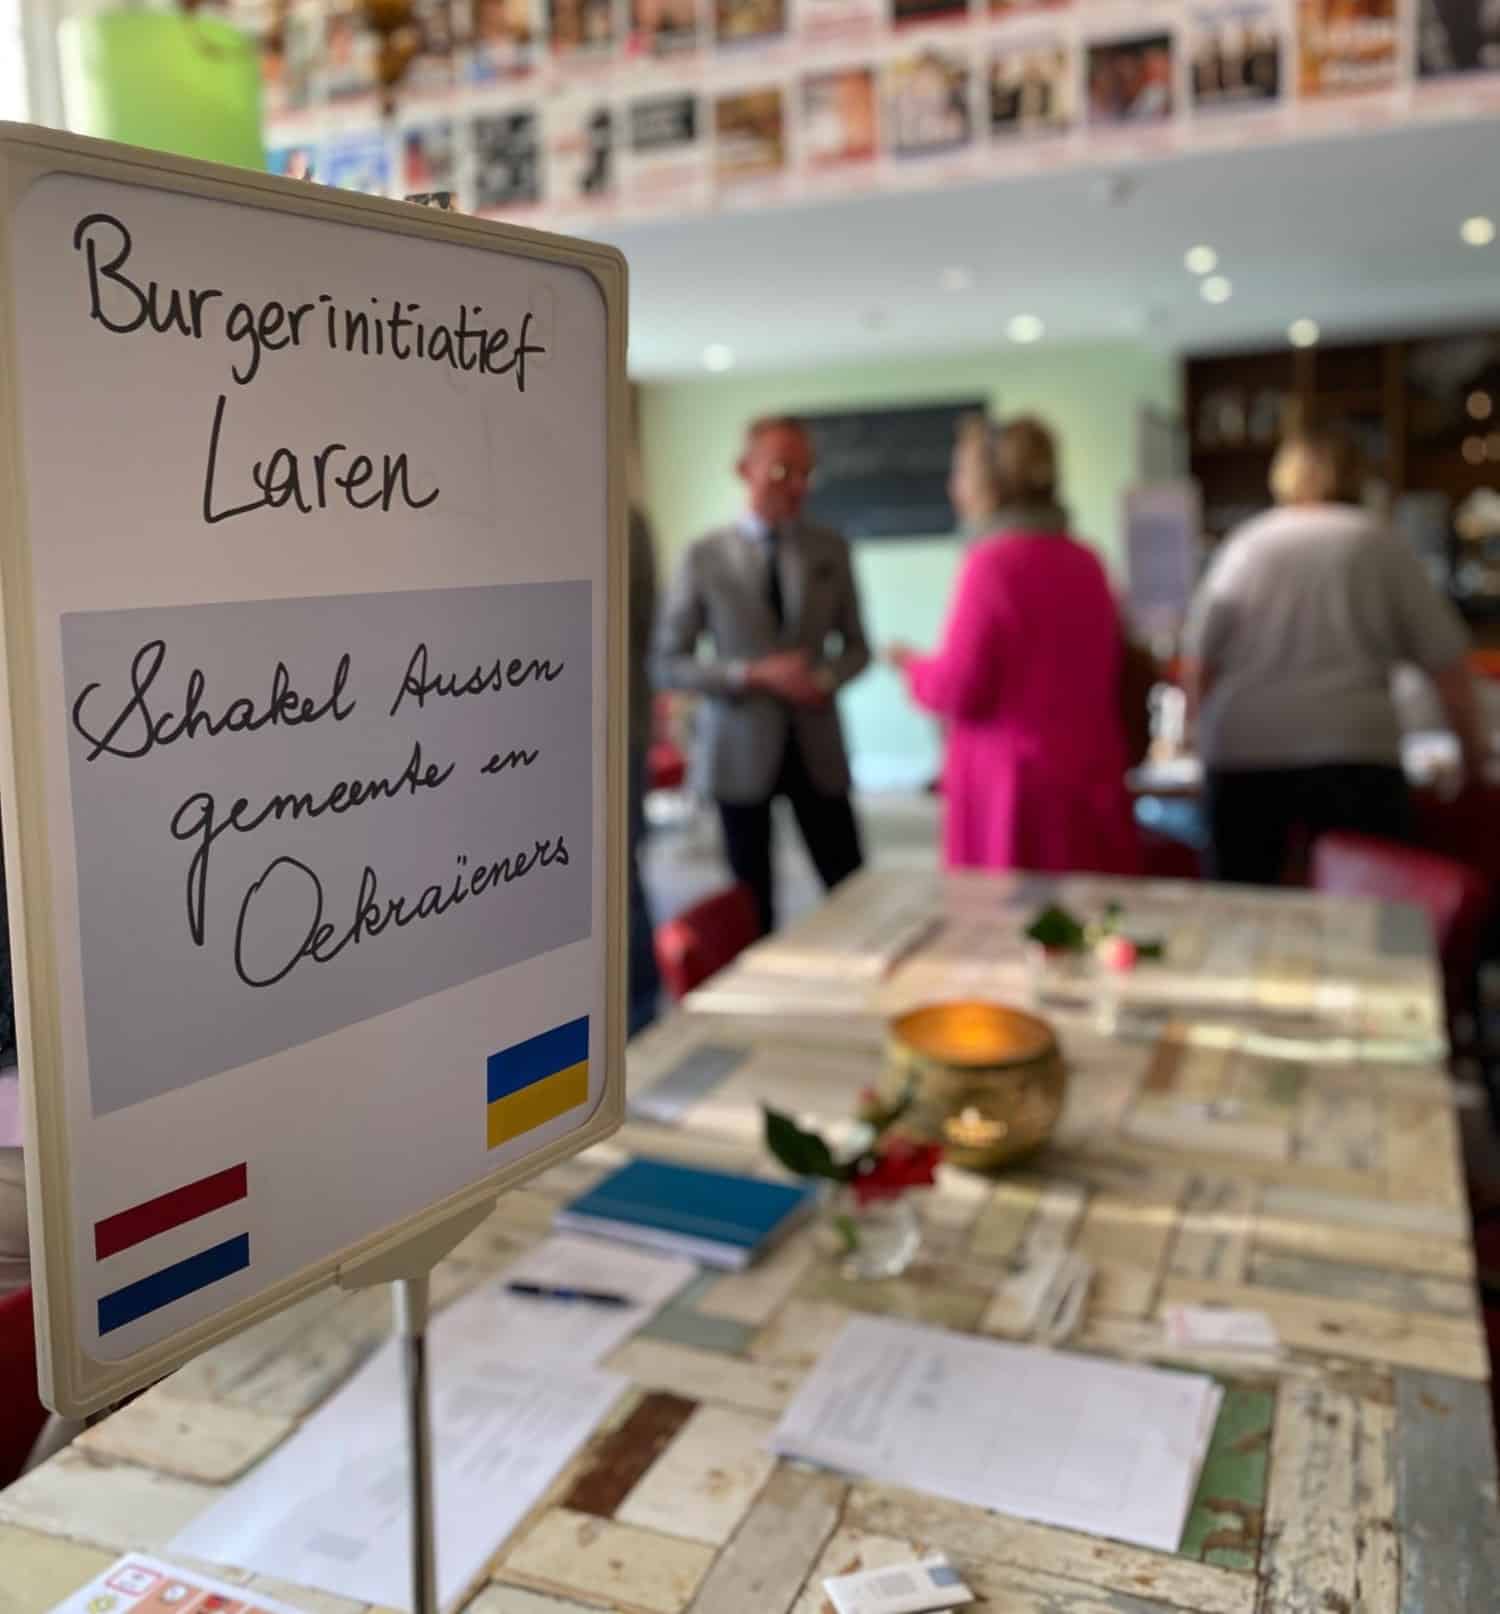 Burgerinitiatief
Laren
Schakel tussen
gemeente en
Oekraïeners